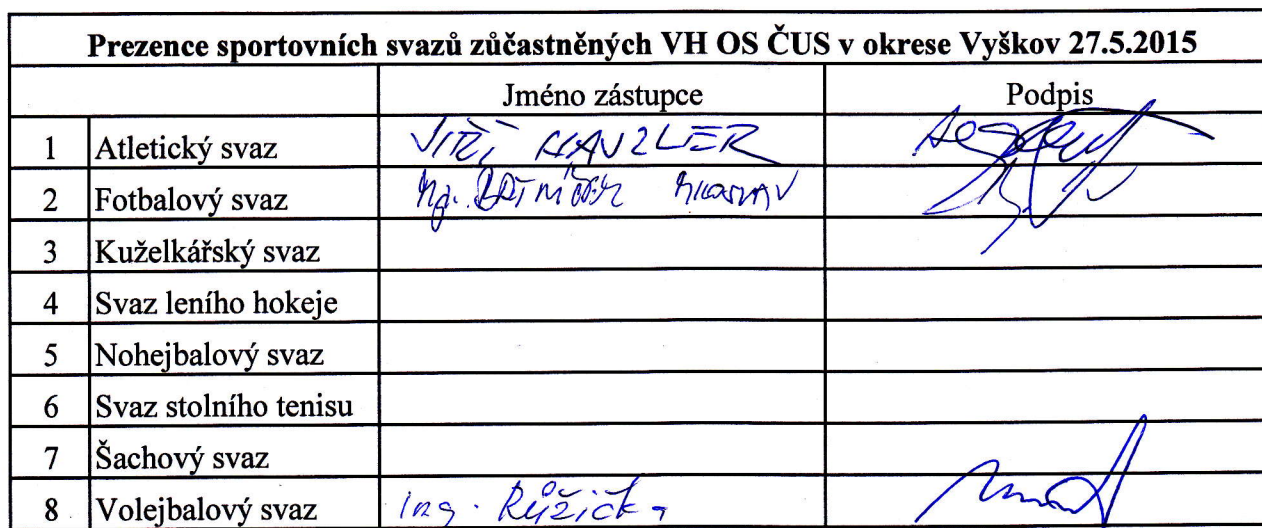 Prezence sportovních svazů zůčastněných VH OS ČUS v okrese Vyškov 27.5.2015
Jméno zástupce Podpis
1 Atletický svaz JIŘÍ
2 Fotbalový svaz
3 Kuželkářský svaz
4 Svaz leního hokeje
5 Nohejbalový svaz
6 Svaz stolního tenisu
7 Šachový svaz
8 Volejbalový svaz Ing. Růžička